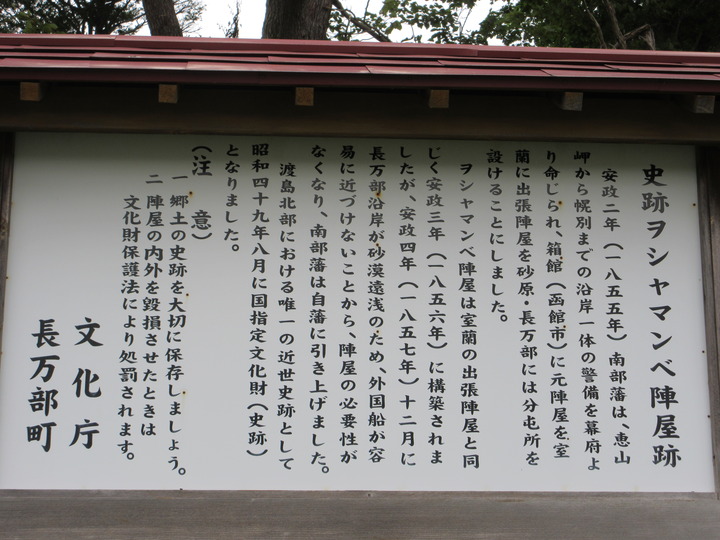 史跡ヲシャマンベ陣屋跡
安政二年（一八五五年）南部藩は、恵山
岬から幌別までの沿岸一体の警備を幕府よ
り命じられ、箱館（函館市）に元陣屋を室
蘭に出張陣屋を砂原・長万部には分屯所を
設けることにしました。
ヲシャマンベ陣屋は室蘭の出張陣屋と同
じく安政三年（一八五六年）に構築されま
したが、安政四年（一八五七年）十二月に
長万部沿岸が砂漠遠浅のため、外国船が容
易に近づけないことから、陣屋の必要性が
なくなり、南部藩は自藩に引き上げました。
渡島北部における唯一の近世史跡として
昭和四十九年八月に国指定文化財（史跡）
となりました。
（注　意）
一　郷土の史跡を大切に保存しましょう。
二　陣屋の内外を毀損させたときは
文化財保護法により処罰されます。
文化庁
長万部町